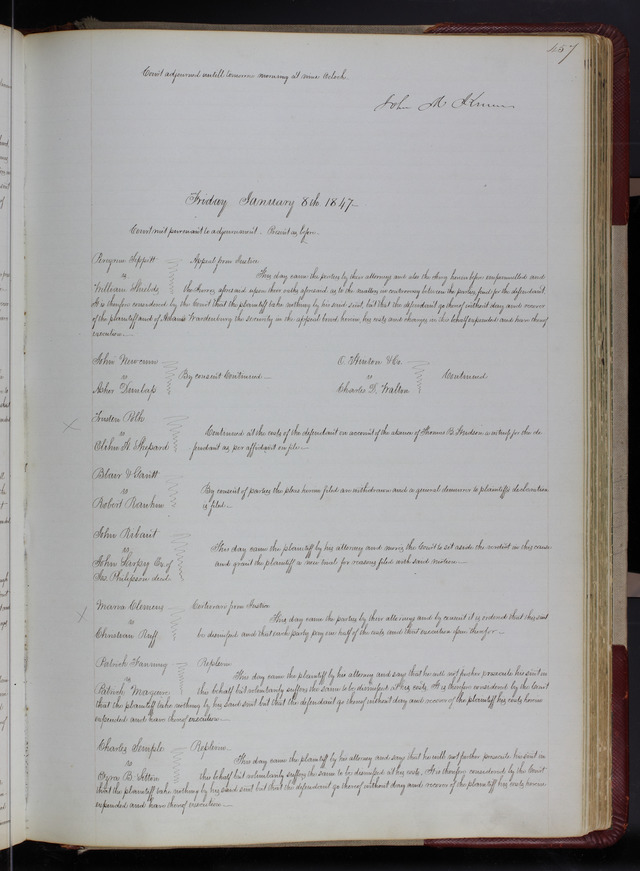 457
Court adjourned untill tomorrow morning at nine Oclock.
John M
Friday January 8th 1847
Court met pursuant to adjournment. Present as before
Appeal from Justice
vs
This day came the parties by their attorneys and also the Jury heretofore empannelled and
William Shields
the Jurors aforesaid upon their oaths aforesaid as to the matters in controversy between the parties find for the defendant.
It is therefore considered by the Court that the plaintiff take nothing by his said suit, but that the defendant go thereof without day and recover
of the plaintiff and of the security in the appeal bond herein, his costs and charges in this behalf expended and have thereof
execution
John Newcum
vs
By consent Continued
Asher Dunlap
vs
Continued
Charles D. Walton
Trusten Polk
vs
Continued at the costs of the defendant on account of the absence of Thomas B. Hudson a witness for the de-
Elihu H Shepard
fendant as per affidavit on file
Blair &
vs
By consent of parties the pleas herein filed are withdrawn and a general demurrer to plaintiffs declaration
Robert
is filed
John
vs
This day came the plaintiff by his attorney and moves the Court to set aside the verdict in this cause
John Ex. of
and grant the plaintiff a new trial for reasons filed with said motion
Jos. Philipson decd.
Maria Clemens
Certiorari from Justice
vs
This day came the parties by their attorneys and by consent it is ordered that this suit
Christian Ruff
be dismissed and that each party pay one half of the costs and that execution issue therefor
Patrick Fanning
Replevin
vs
This day came the plaintiff by his attorney and says that he will not further prosecute his suit in
Patrick
this behalf but voluntarily suffers the same to be dismissed at his costs. It is therefore considered by the Court
that the plaintiff take nothing by his said suit but that the defendant go thereof without day and recover of the plaintiff his costs herein
expended and have thereof execution
Charles Semple
Replevin
vs
This day came the plaintiff by his attorney and says that he will not further prosecute his suit in
Ezra B.
this behalf but voluntarily suffers the same to be dismissed at his costs. It is therefore considered by the Court
that the plaintiff take nothing by his said suit but that the defendant go thereof without day and recover of the plaintiff his costs herein
expended and have thereof execution